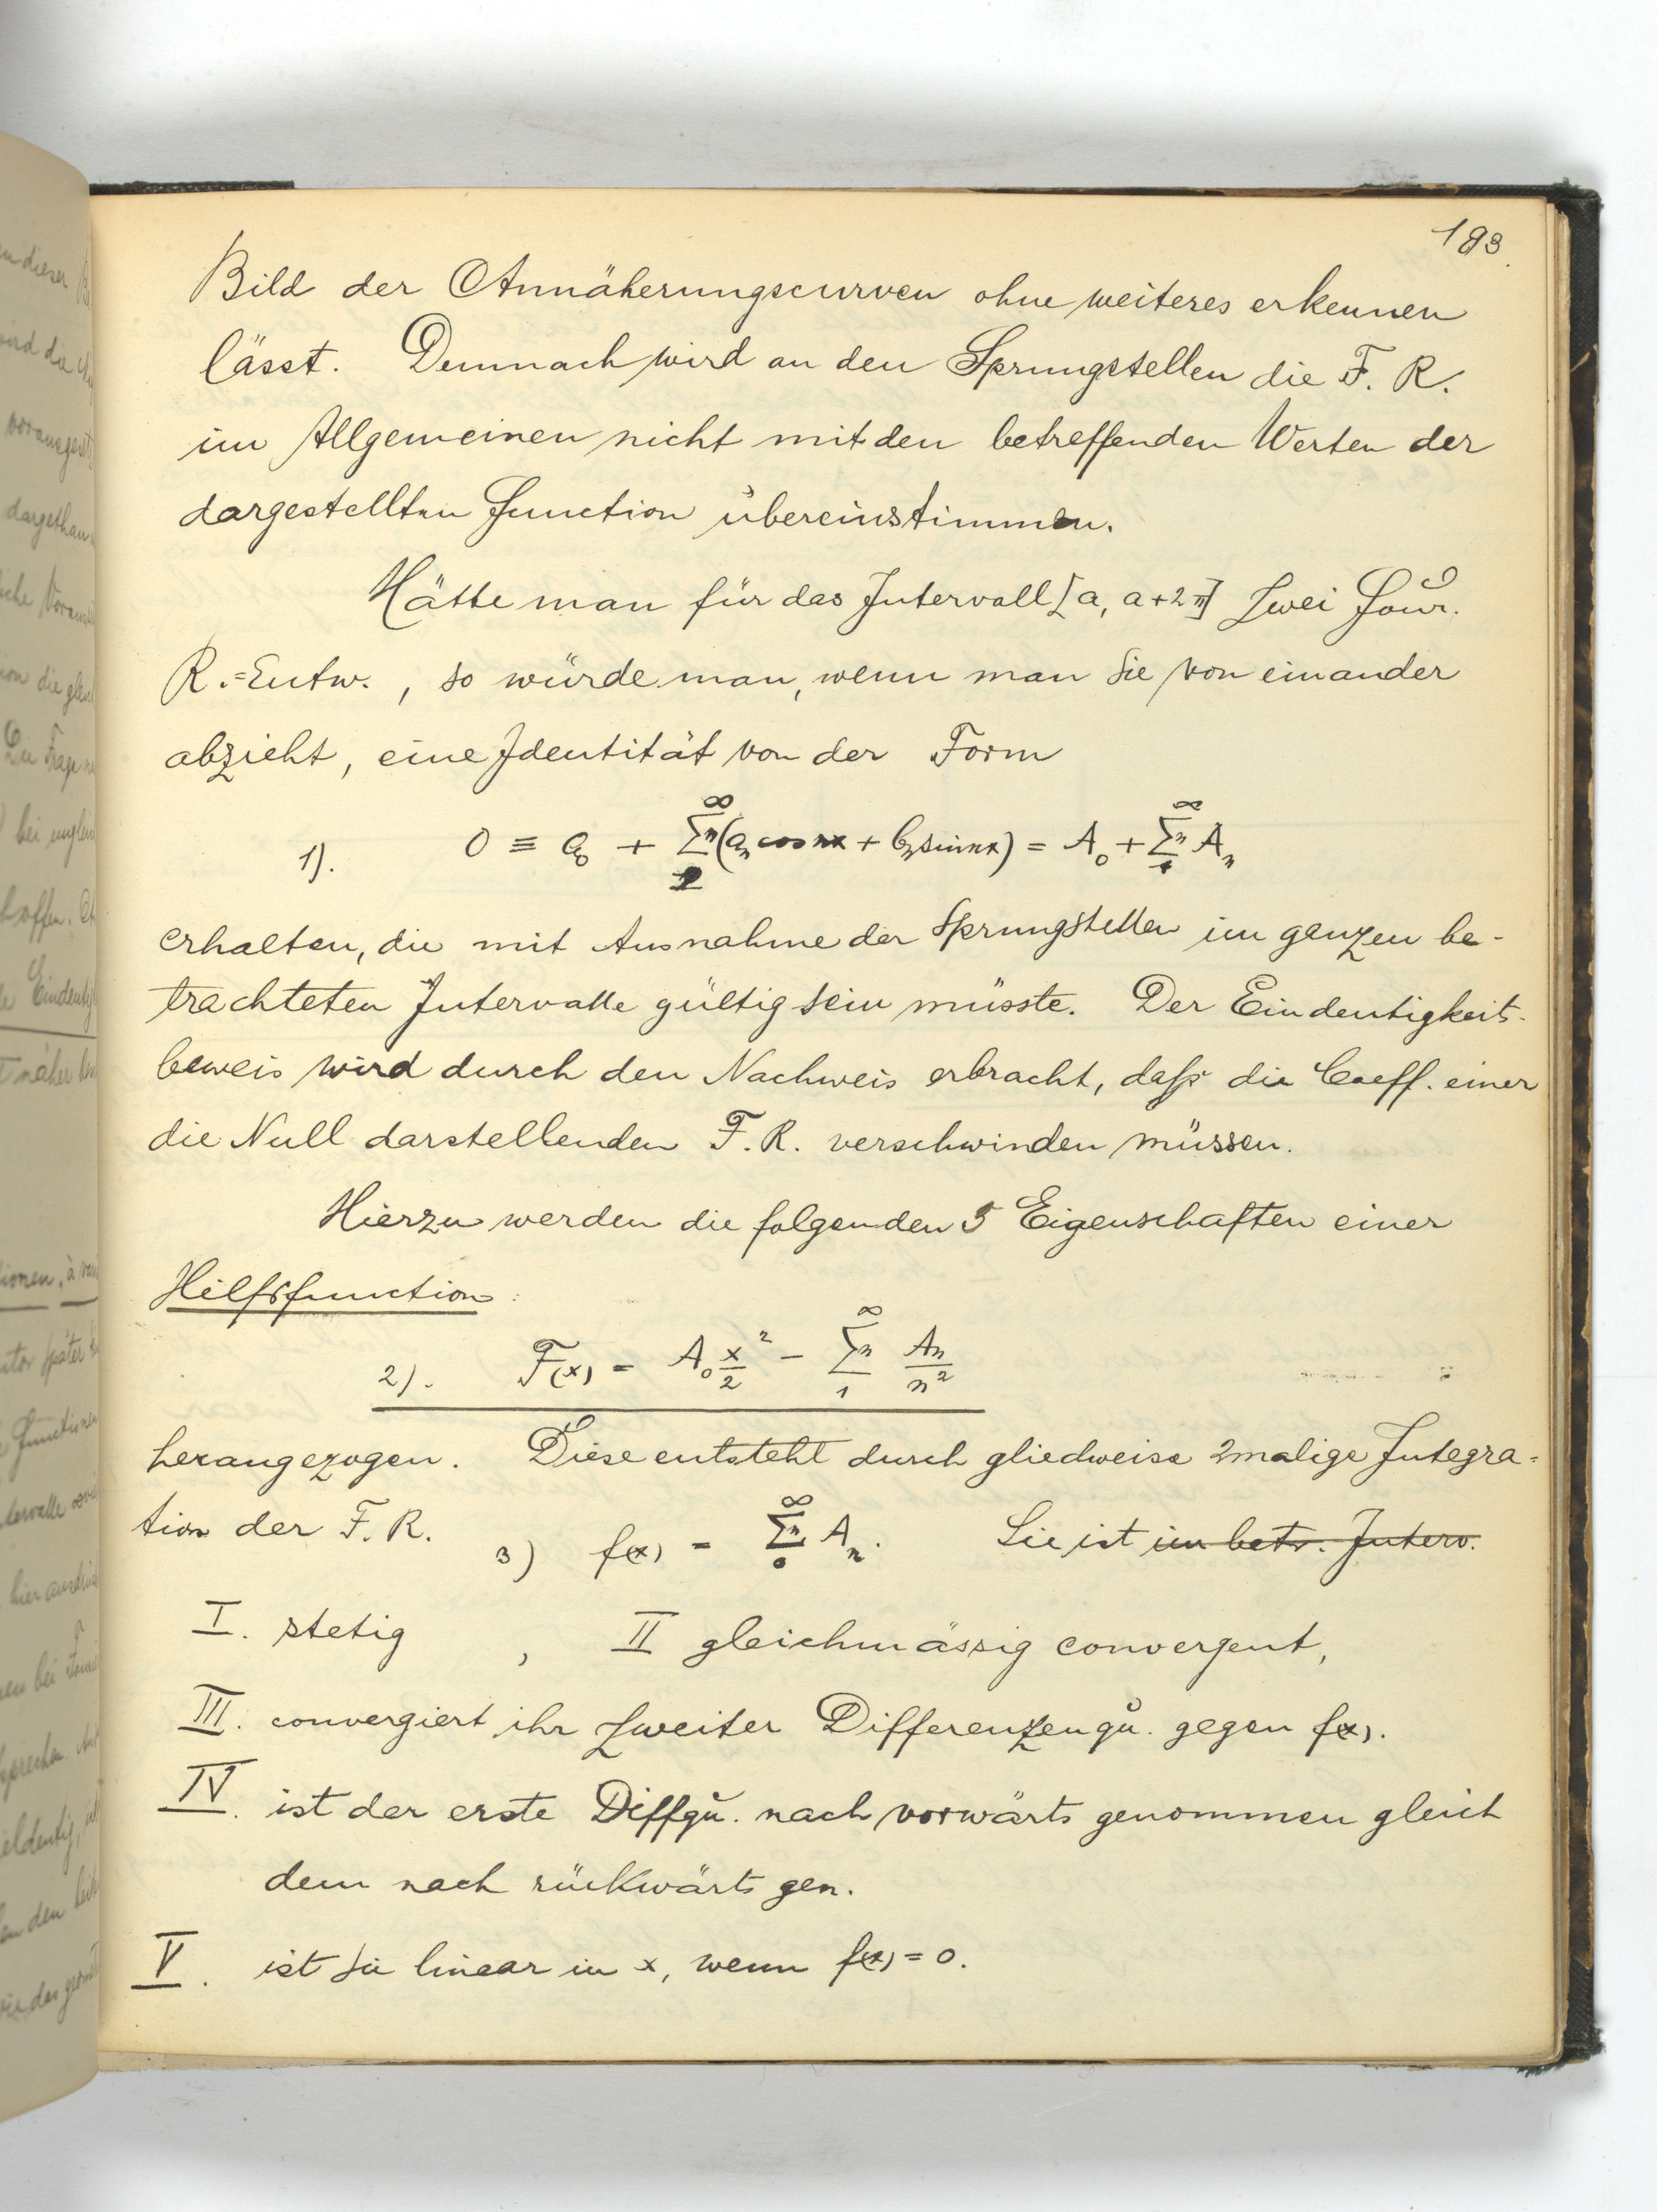 193.
Bild der Annäherungscurven ohne weiteres erkennen
lässt. Demnach wird an den Sprungstellen die F. R.
im Allgemeinen nicht mit den betreffenden Werten der
dargestellten Function übereinstimmen.
Hätte man für das Intervall [a, a+2π] zwei Four.
R.=Entw., so würde man, wenn man sie von einander
abzieht, eine Identität von der Form
1). 0 ≡ a₀ + ∑ₙ₌₁^∞ (aₙ cos nx + bₙ sin nx) = A₀ + ∑ₙ₌₁^∞ Aₙ
erhalten, die mit Ausnahme der Sprungstellen im ganzen be-
trachteten Intervalle gültig sein müsste. Der Eindeutigkeits-
beweis wird durch den Nachweis erbracht, daß die Coeff. einer
die Null darstellenden F. R. verschwinden müssen.
Hierzu werden die folgenden 5 Eigenschaften einer
Hilfsfunction:
2). F(x) = A₀ x²/2 − ∑ₙ₌₁^∞ Aₙ/n²
herangezogen. Diese entsteht durch gliedweise 2malige Integra=
tion der F. R. 3) f(x) = ∑ₙ₌₀^∞ Aₙ. Sie ist im betr. Interv.
I. stetig, II gleichmässig convergent,
III. convergiert ihr zweiter Differenzenqu. gegen f(x).
IV. ist der erste Diffqu. nach vorwärts genommen gleich
dem nach rückwärts gen.
V. ist sie linear in x, wenn f(x) = 0.